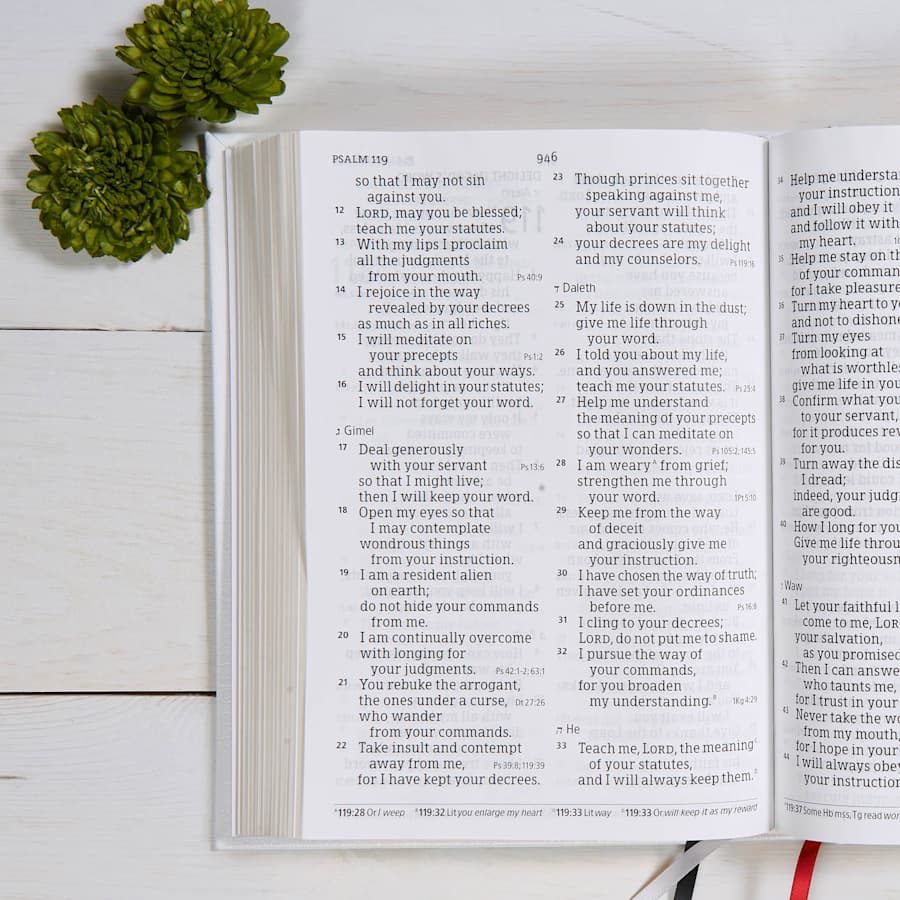 PSALM 119
946
so that I may not sin
against you.
12 LORD, may you be blessed;
teach me your statutes.
13 With my lips I proclaim
all the judgments
from your mouth. Ps 40:9
14 I rejoice in the way
revealed by your decrees
as much as in all riches.
15 I will meditate on
your precepts Ps 1:2
and think about your ways.
16 I will delight in your statutes;
I will not forget your word.
ג Gimel
17 Deal generously
with your servant Ps 13:6
so that I might live;
then I will keep your word.
18 Open my eyes so that
I may contemplate
wondrous things
from your instruction.
19 I am a resident alien
on earth;
do not hide your commands
from me.
20 I am continually overcome
with longing for
your judgments. Ps 42:1-2; 63:1
21 You rebuke the arrogant,
the ones under a curse, Dt 27:26
who wander
from your commands.
22 Take insult and contempt
away from me, Ps 39:8; 119:39
for I have kept your decrees.
23 Though princes sit together
speaking against me,
your servant will think
about your statutes;
24 your decrees are my delight
and my counselors. Ps 119:16
ד Daleth
25 My life is down in the dust;
give me life through
your word.
26 I told you about my life,
and you answered me;
teach me your statutes. Ps 25:4
27 Help me understand
the meaning of your precepts
so that I can meditate on
your wonders. Ps 105:2; 145:5
28 I am weary A from grief;
strengthen me through
your word. 1Pt 5:10
29 Keep me from the way
of deceit
and graciously give me
your instruction.
30 I have chosen the way of truth;
I have set your ordinances
before me. Ps 16:8
31 I cling to your decrees;
LORD, do not put me to shame.
32 I pursue the way of
your commands,
for you broaden
my understanding. B 1Kg 4:29
ה He
33 Teach me, LORD, the meaning C
of your statutes,
and I will always keep them. D
A 119:28 Or I weep B 119:32 Lit you enlarge my heart C 119:33 Lit way D 119:33 Or will keep it as my reward
34 Help me understa
your instruction
and I will obey it
and follow it with
my heart.
35 Help me stay on th
of your comman
for I take pleasure
36 Turn my heart to yo
and not to dishone
37 Turn my eyes
from looking at
what is worthles
give me life in you
38 Confirm what you
to your servant,
for it produces rev
for you.
39 Turn away the dis
I dread;
indeed, your judg
are good.
40 How I long for you
Give me life throu
your righteousn
Waw
41 Let your faithful l
come to me, LOR
your salvation,
as you promised
42 Then I can answe
who taunts me,
for I trust in your
43 Never take the wo
from my mouth,
for I hope in your
44 I will always obey
your instruction
119:37 Some Hb mss, Tg read wor